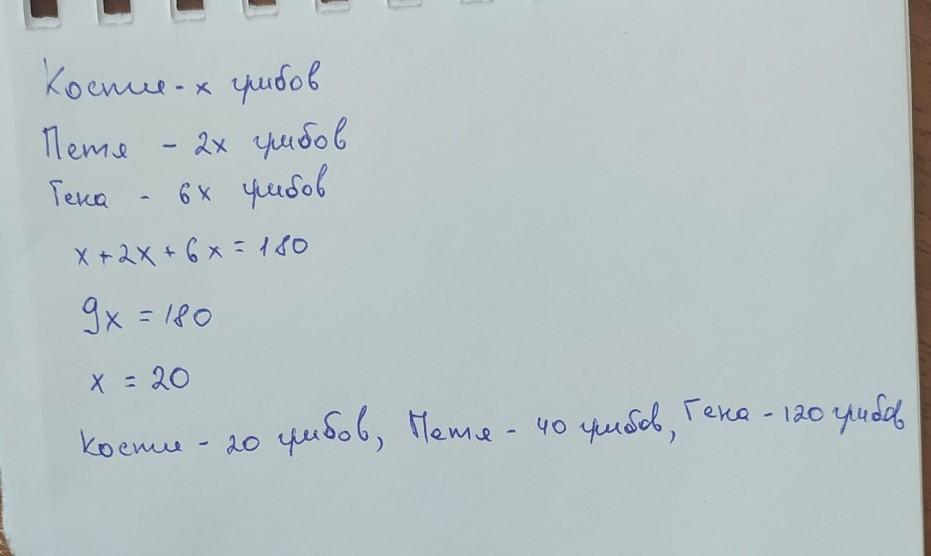 Костя - x грибов
Петя - 2x грибов
Гена - 6x грибов
x + 2x + 6x = 180
9x = 180
x = 20
Костя - 20 грибов, Петя - 40 грибов, Гена - 120 грибов